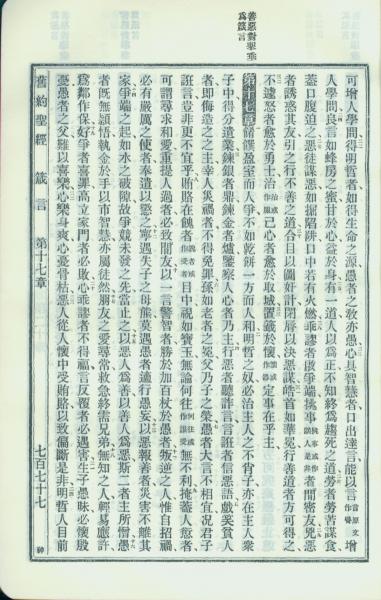 善惡對舉垂
爲箴言
可增人學問得明哲者如得生命之源愚者之教亦愚心具智慧者口出達言能以言增
人學問良言如蜂房之蜜甘於心益於身有一道人以爲正不知終爲趨死之道勞者勞苦謀食
蓋口腹迫之惡徒謀惡如掘陷阱口中若有火燃乖謬者啟爭端搆事者間密友兇惡
者誘惑其友引之行不善之道合目以圖奸計閉唇以決惡謀皓首如華冕行善道者方可得之
不遽怒者愈於勇士治己心者愈於取城置籤於懷定事在乎主
第十七章餚饌盈室而人爭不如乾餅一方而人和明哲之奴必治主人之不肖子亦在主人衆
子中得分遺業鍊銀者鼎鍊金者爐鑒察人心者乃主行惡者聽詐言言誑者信惡語戲笑貧人
者即侮造之之主幸人災禍者不得免罪孫如老者之冕父乃子之榮愚者大言不相宜况君子
誑言豈非更不宜乎賄賂在餽者目中視如寶玉無論何往無不利掩蓋人愆者
可謂尋求和愛重提人過者必致間友以一言警智者勝於加百杖於愚者叛逆之人惟自招禍
必有嚴厲之使者奉遣以懲之寧遇失子之母熊莫遇愚者逞行愚妄以惡報善者災害不離其
家爭端之起如水之破隄故爭競未發之先當止之以惡人爲善以善人爲惡斯二者主所憎愚
者既無穎悟執金於手以市智慧亦屬徒然朋友之愛尋常救急終需兄弟無知之人輕易應許
爲鄰作保好爭者喜罪高立家門者必敗心乖謬者不得福言反覆者必遇害生子愚昧必懷殷
憂愚者之父難以喜樂心樂身爽心憂骨枯惡人從人懷中受賄賂以致偏斷是非明哲人目前
舊約聖經 箴言 第十七章 七百七十七